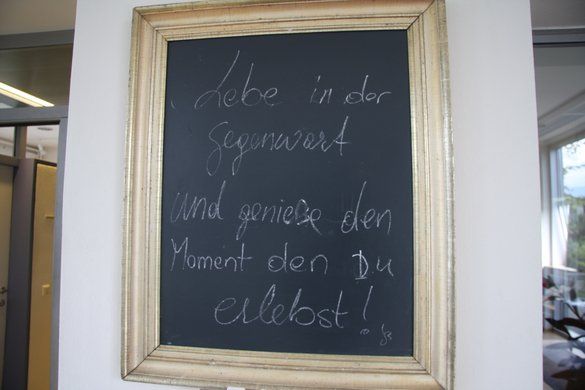 Lebe in der
Gegenwart
und genieße den
Moment den Du
erlebst!